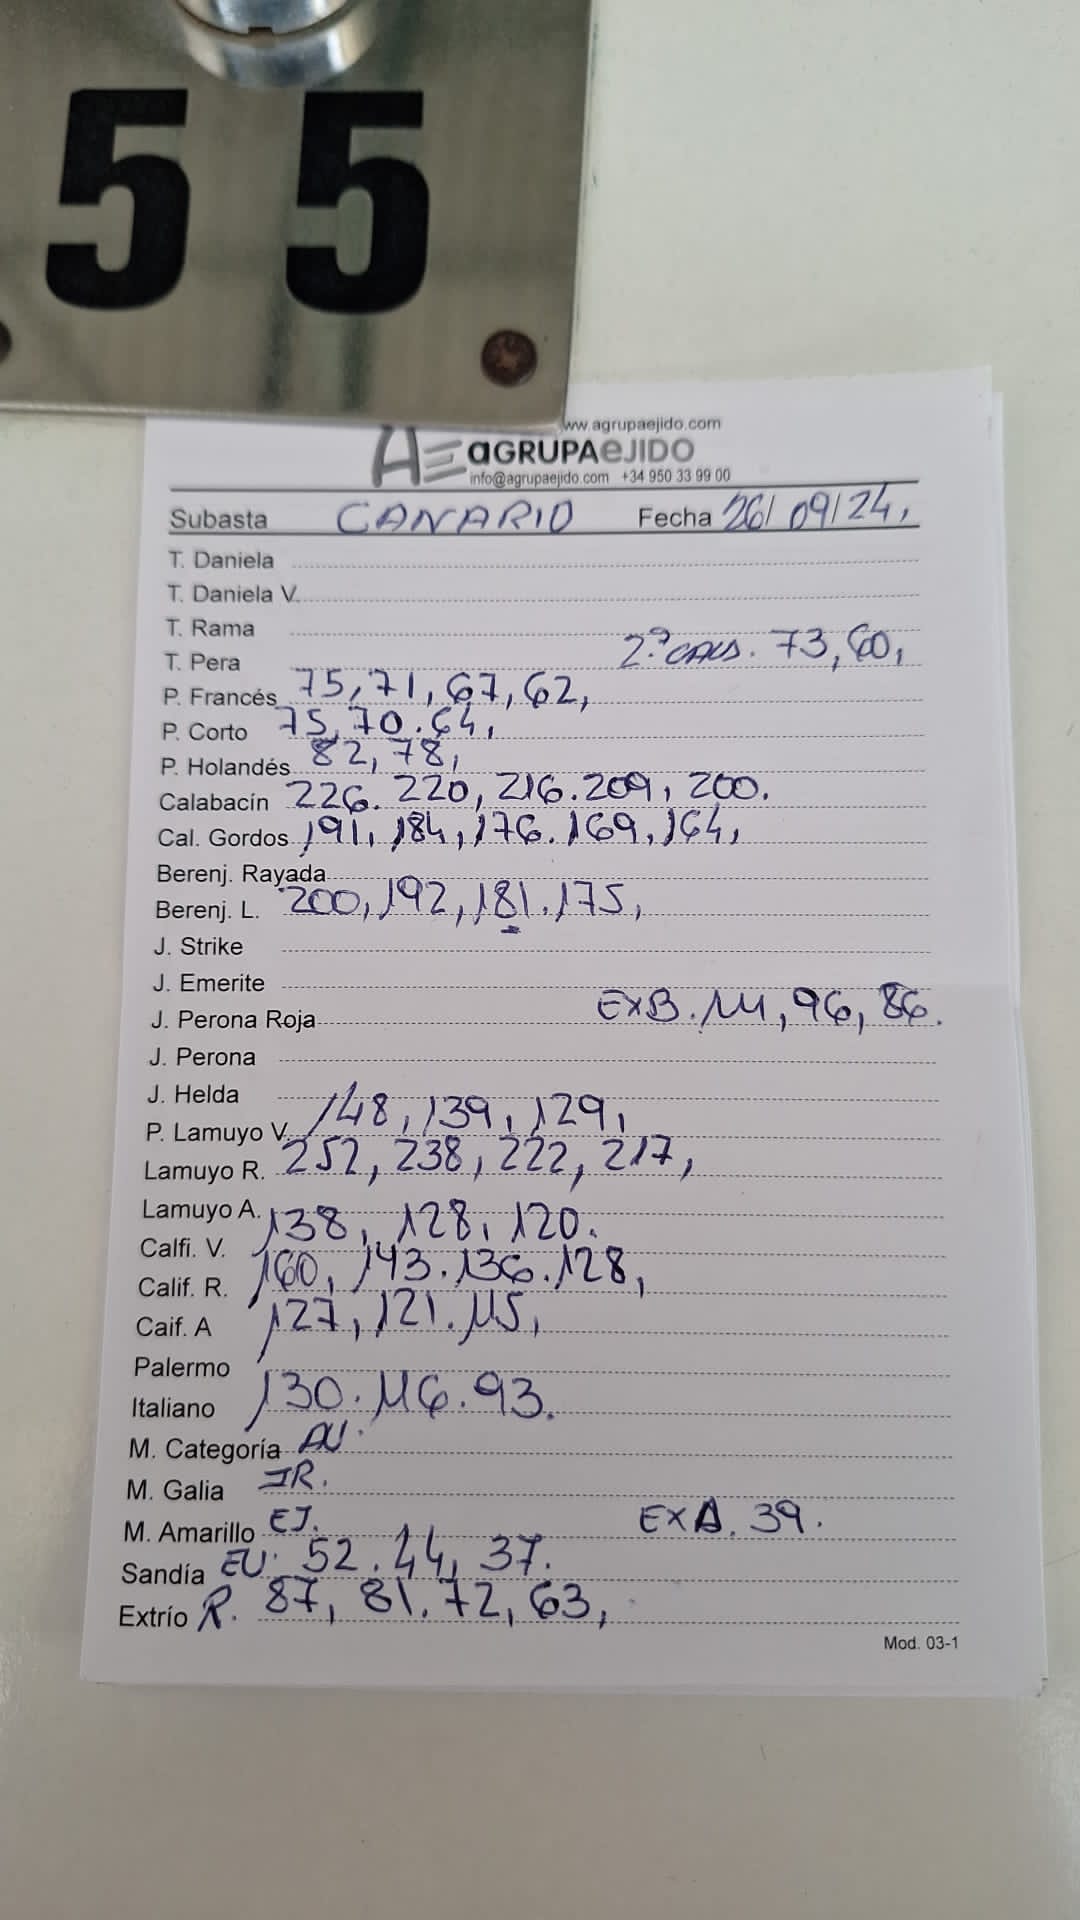 55
ww.agrupaejido.com
AE aGRUPAeJIDO
info@agrupaejido.com +34 950 33 99 00
Subasta CANARIO Fecha 26/09/24,
T. Daniela
T. Daniela V.
T. Rama
T. Pera 2ª CALD. 73, 60,
P. Francés 75, 71, 67, 62,
P. Corto 75, 70. 64,
P. Holandés 82, 78,
Calabacín 226. 220, 216. 209, 200.
Cal. Gordos 191, 184, 176. 169, 164,
Berenj. Rayada
Berenj. L. 200, 192, 181. 175,
J. Strike
J. Emerite
J. Perona Roja EXB. 111, 96, 86.
J. Perona
J. Helda
P. Lamuyo V. 148, 139, 129,
Lamuyo R. 252, 238, 222, 217,
Lamuyo A.
Calfi. V. 138, 128, 120.
Calif. R. 160, 143. 136. 128,
Caif. A 127, 121. 115,
Palermo
Italiano 130. 116. 93.
M. Categoría AU.
M. Galia IR.
M. Amarillo EJ. EXA. 39.
Sandía EU. 52. 44, 37.
Extrío R. 87, 81. 72, 63,
Mod. 03-1